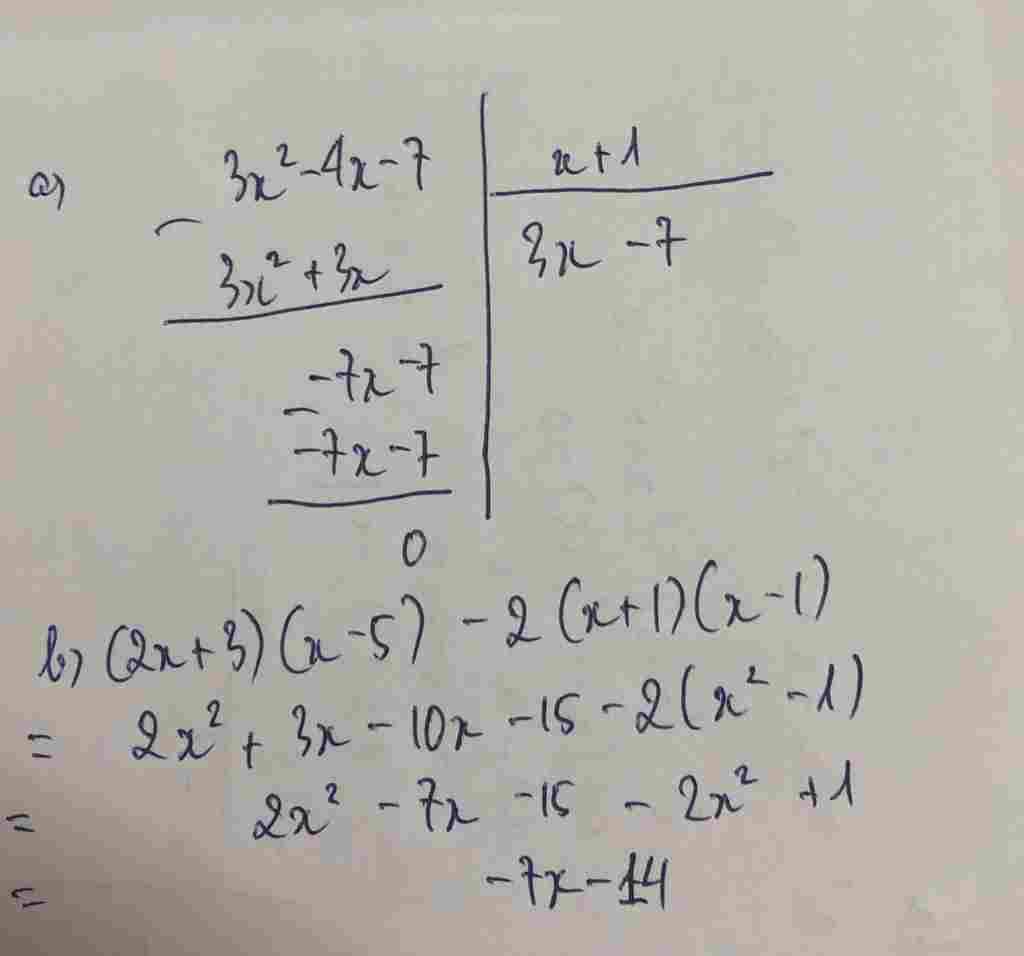 a) 3x² - 4x - 7 | x + 1
- 3x² + 3x | 3x - 7
-7x - 7
- -7x - 7
0
b) (2x + 3)(x - 5) - 2(x + 1)(x - 1)
= 2x² + 3x - 10x - 15 - 2(x² - 1)
= 2x² - 7x - 15 - 2x² + 1
= -7x - 14